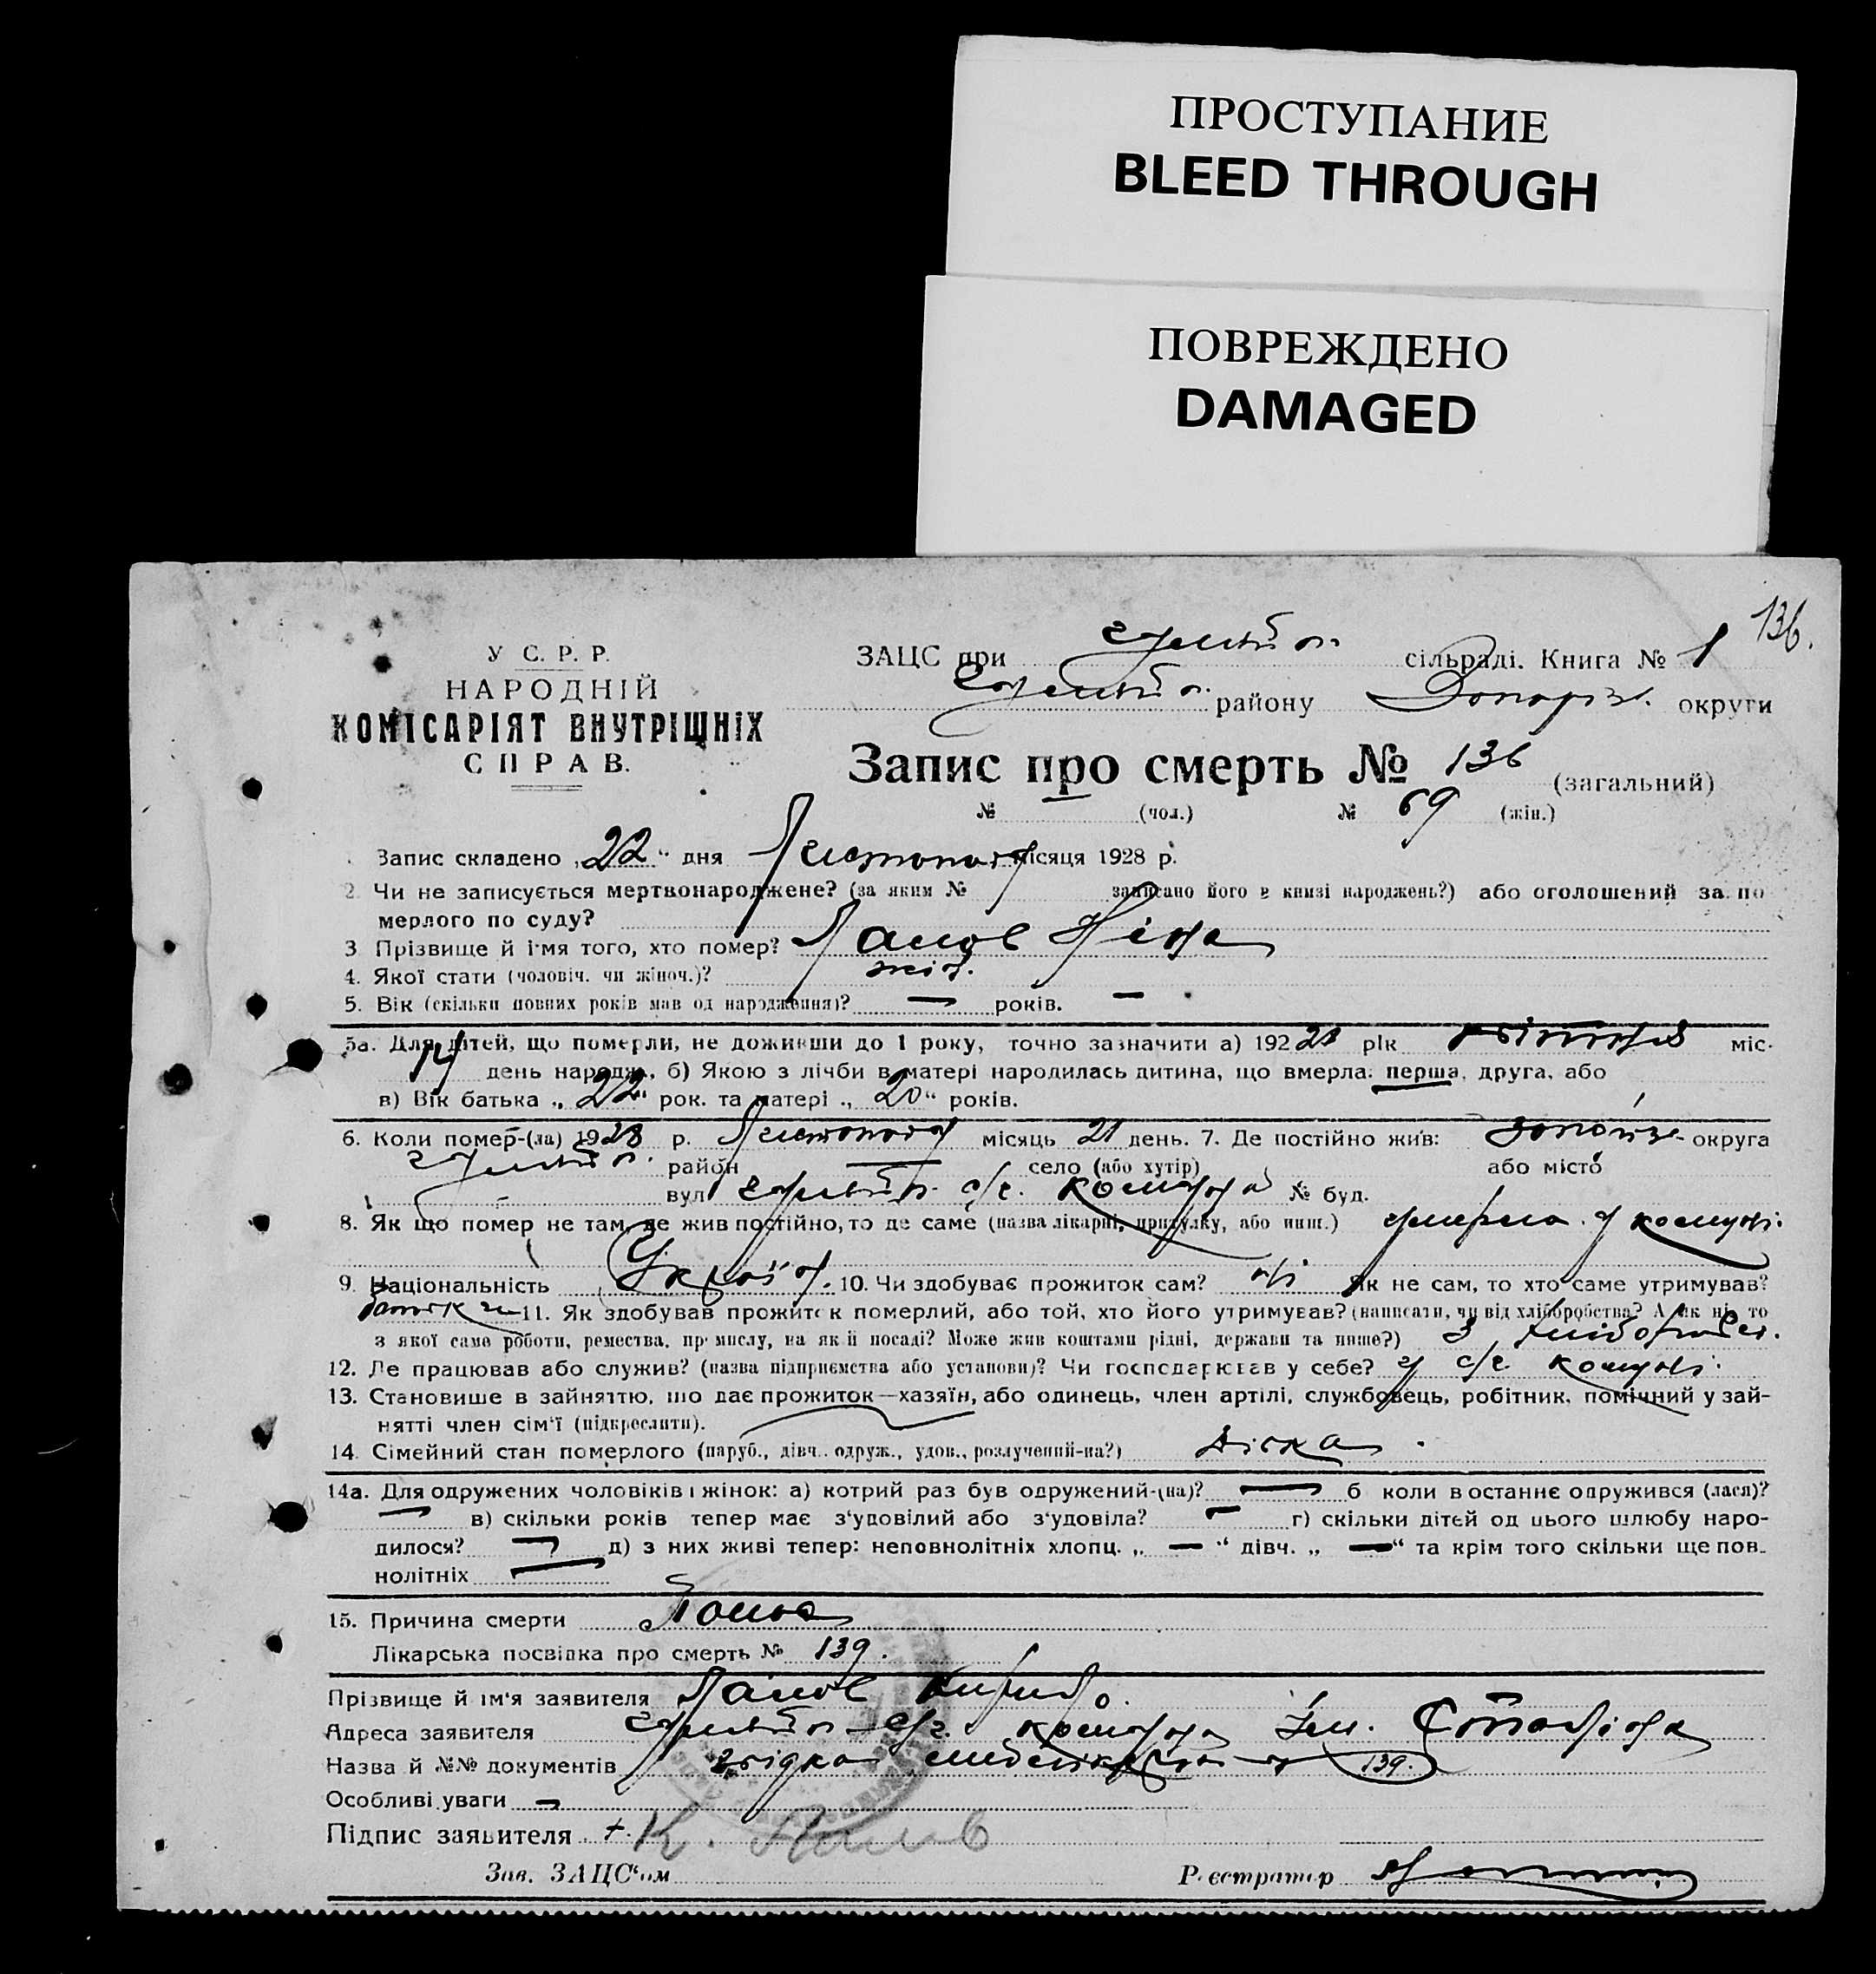 ПРОСТУПАНИЕ
BLEED THROUGH
ПОВРЕЖДЕНО
DAMAGED
136.
У С. Р. Р.
НАРОДНІЙ
КОМІСАРІЯТ ВНУТРІШНІХ
СПРАВ.
ЗАЦС при сільраді. Книга № 1
району округи
Запис про смерть № 136 (загальний)
№ (чол.) № 69 (жін.)
Запис складено „22“ дня Листопада місяця 1928 р.
2. Чи не записується мертвонароджене? (за яким № записано його в книзі народжень?) або оголошений за по
мерлого по суду?
3 Прізвище й ім'я того, хто помер?
4. Якої стати (чоловіч. чи жіноч.)? жін.
5. Вік (скільки повних років мав од народження)? — років. —
5а. Для дітей, що померли, не доживши до 1 року, точно зазначити а) 1928 рік квітня міс.
14 день народж., б) Якою з лічби в матері народилась дитина, що вмерла: перша, друга, або
в) Вік батька „22“ рок. та матері „20“ років.
6. Коли помер-(ла) 1928 р. Листопада місяць 21 день. 7. Де постійно жив: округа
район — село (або хутір) або місто
вул с/г. комуна № буд.
8. Як що помер не там, де жив постійно, то де саме (назва лікарні, притулку, або инш.) умерла у комуні
9. Національність Україн. 10. Чи здобуває прожиток сам? ні Як не сам, то хто саме утримував?
батьки 11. Як здобував прожиток померлий, або той, хто його утримував? (написати, чи від хліборобства? А як ні, то
з якої саме роботи, ремества, промислу, на якій посаді? Може жив коштами рідні, держави та инше?) З хлібороб.
12. Де працював або служив? (назва підприємства або установи)? Чи господарював у себе? у с/г. комуні
13. Становище в зайняттю, що дає прожиток—хазяїн, або одинець, член артілі, службовець, робітник, помічний у зай-
нятті член сім'ї (підкреслити).
14. Сімейний стан померлого (паруб., дівч., одруж., удов., розлучений-на?) дівка
14а. Для одружених чоловіків і жінок: а) котрий раз був одружений-(на)? — б коли востаннє одружився (лася)?
— в) скільки років тепер має з'удовілий або з'удовіла? — г) скільки дітей од цього шлюбу наро-
дилося? — д) з них живі тепер: неповнолітніх хлопц. „ — “ дівч. „ — “ та крім того скільки ще пов-
нолітніх —
15. Причина смерти
Лікарська посвідка про смерть № 139.
Прізвище й ім'я заявителя
Адреса заявителя с/г. комуна ім.
Назва й №№ документів 139.
Особливі уваги —
Підпис заявителя +. К.
Зав. ЗАЦС'ом Реєстратор